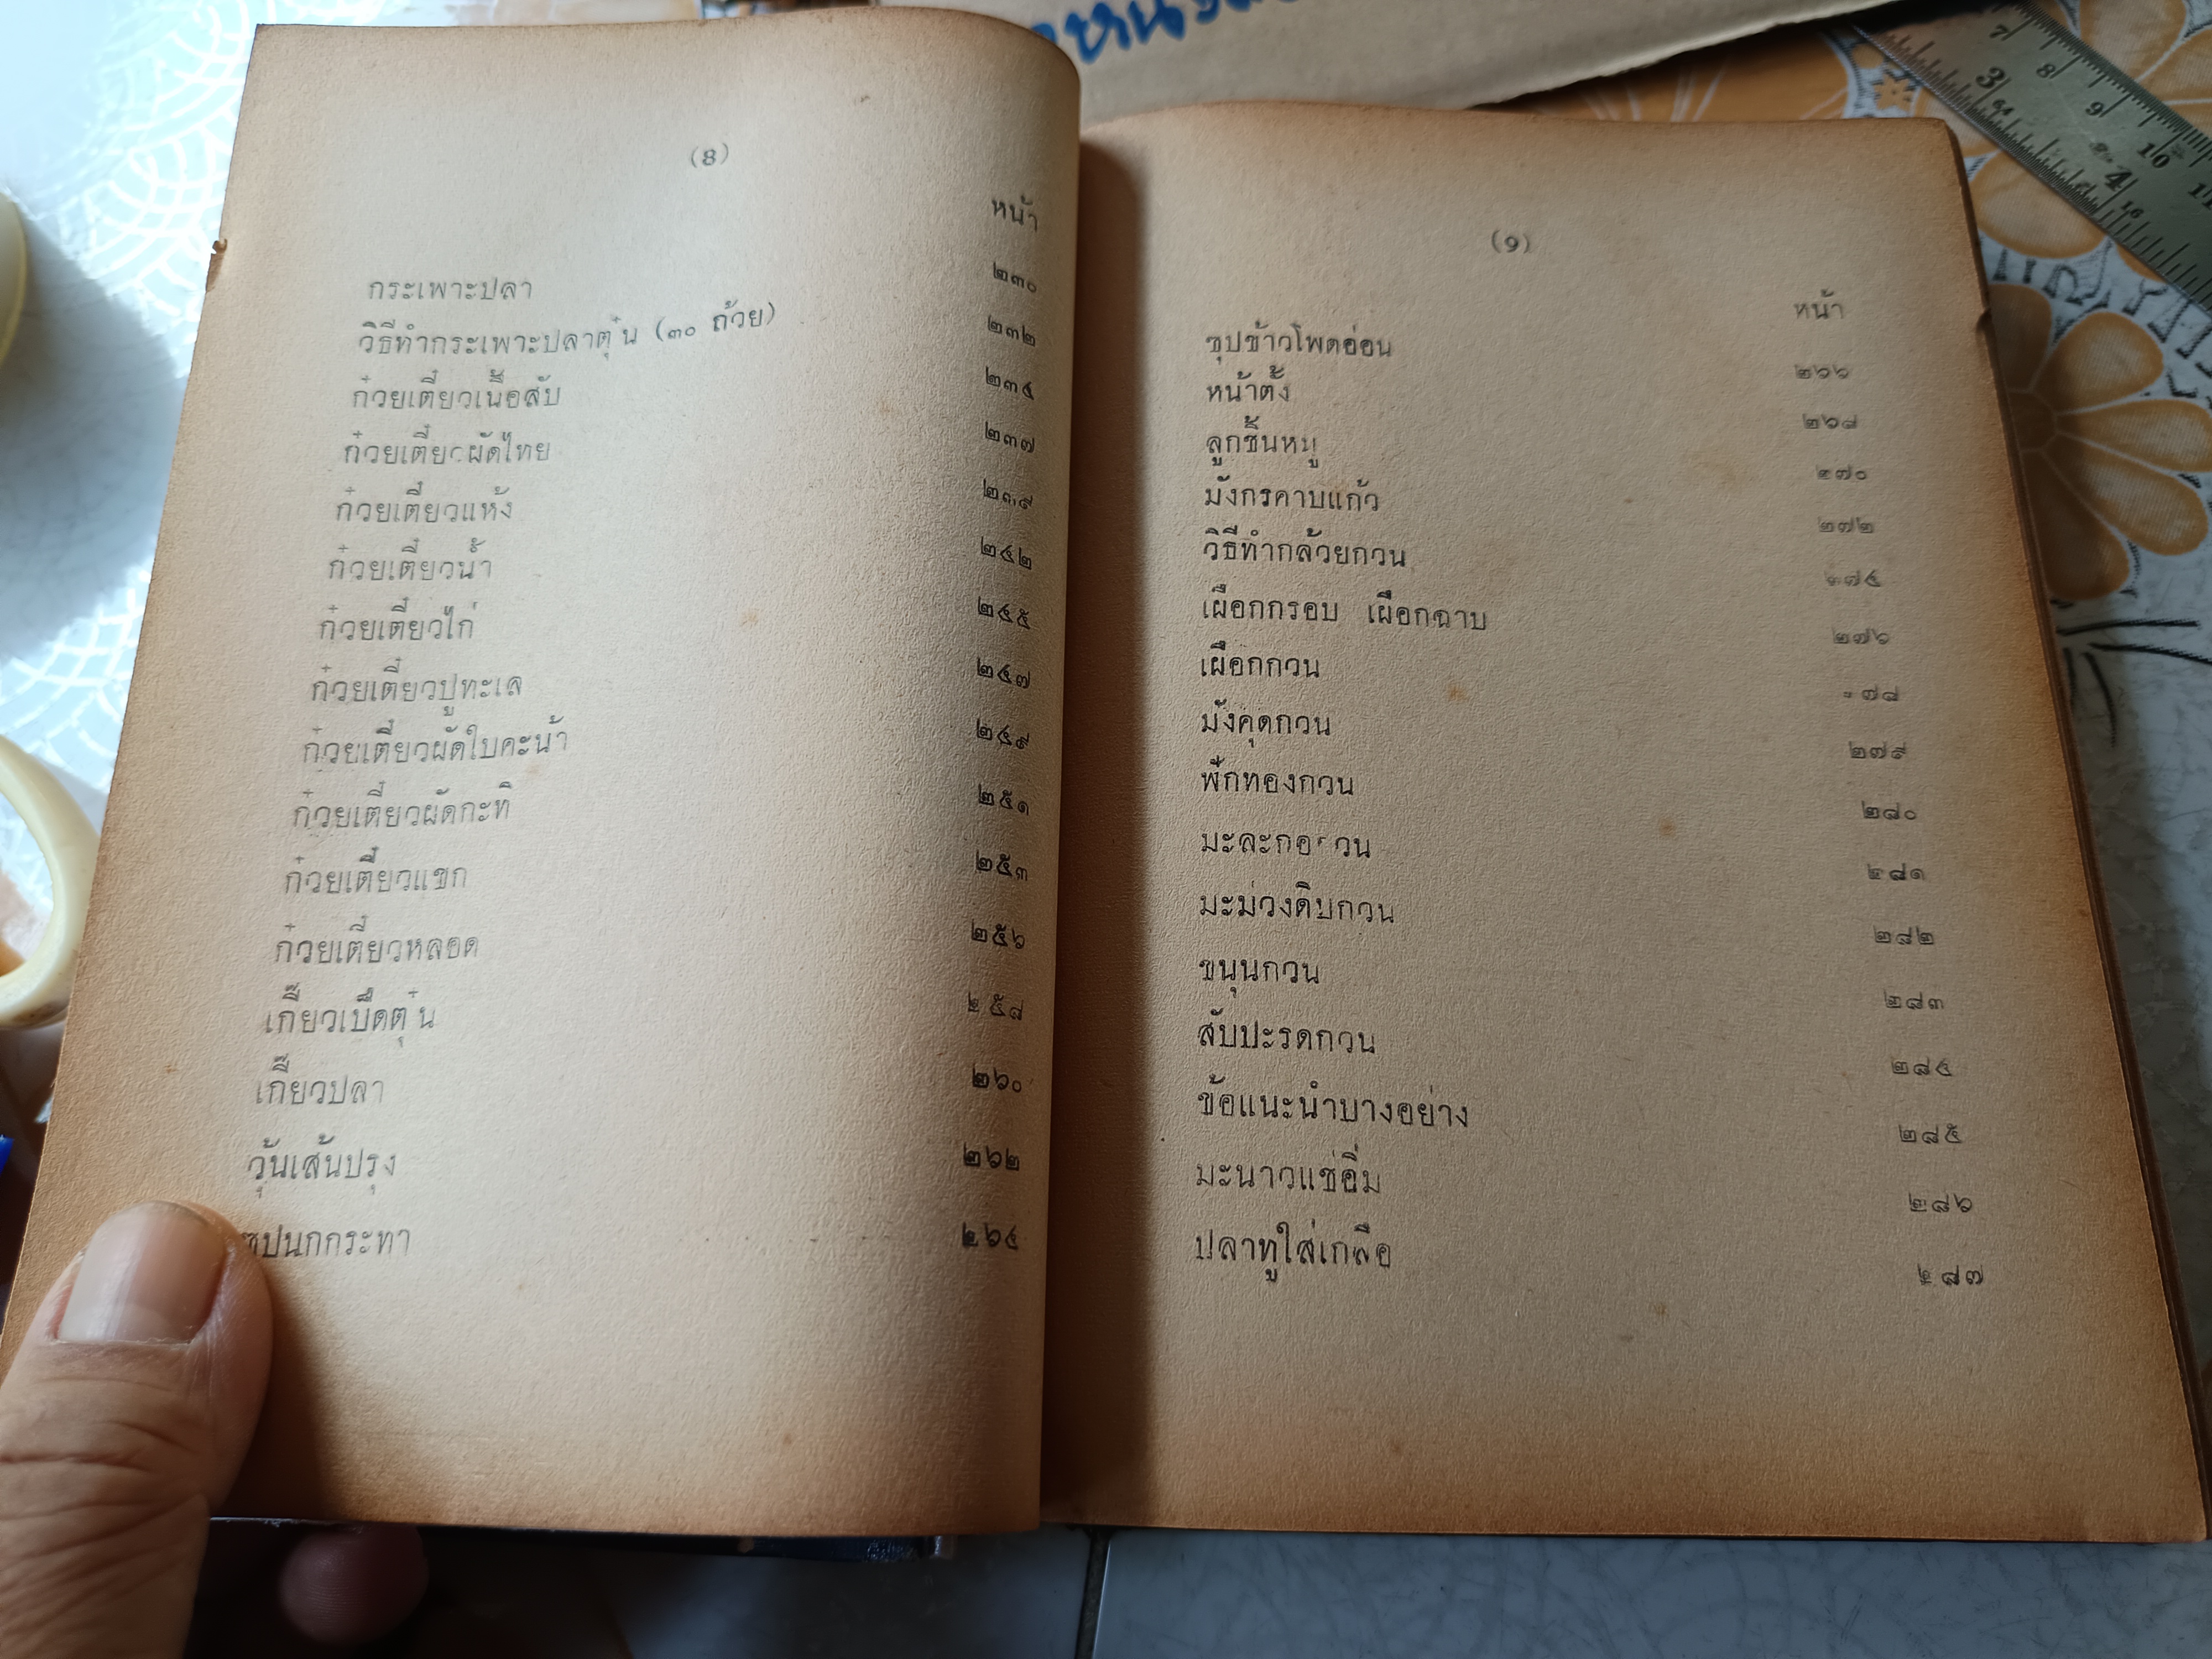 (8)
หน้า
กระเพาะปลา ๒๓๐
วิธีทำกระเพาะปลาตุ๋น (๓๐ ถ้วย) ๒๓๒
ก๋วยเตี๋ยวเนื้อสับ ๒๓๔
ก๋วยเตี๋ยวผัดไทย ๒๓๗
ก๋วยเตี๋ยวแห้ง ๒๓๙
ก๋วยเตี๋ยวน้ำ ๒๔๒
ก๋วยเตี๋ยวไก่ ๒๔๕
ก๋วยเตี๋ยวปูทะเล ๒๔๗
ก๋วยเตี๋ยวผัดใบคะน้า ๒๔๙
ก๋วยเตี๋ยวผัดกะทิ ๒๕๑
ก๋วยเตี๋ยวแขก ๒๕๓
ก๋วยเตี๋ยวหลอด ๒๕๖
เกี๊ยวเป็ดตุ๋น ๒๕๘
เกี๊ยวปลา ๒๖๐
วุ้นเส้นปรุง ๒๖๒
ซุปนกกระทา ๒๖๔
(9)
หน้า
ซุปข้าวโพดอ่อน ๒๖๖
หน้าตั้ง ๒๖๘
ลูกชิ้นหมู ๒๗๐
มังกรคาบแก้ว ๒๗๒
วิธีทำกล้วยกวน ๒๗๔
เผือกกรอบ เผือกฉาบ ๒๗๖
เผือกกวน ๒๗๘
มังคุดกวน ๒๗๙
ฟักทองกวน ๒๘๐
มะละกอกวน ๒๘๑
มะม่วงดิบกวน ๒๘๒
ขนุนกวน ๒๘๓
สับปะรดกวน ๒๘๔
ข้อแนะนำบางอย่าง ๒๘๕
มะนาวแช่อิ่ม ๒๘๖
ปลาทูใส่เกลือ ๒๘๗
3
4
7
8
9
10
64
16